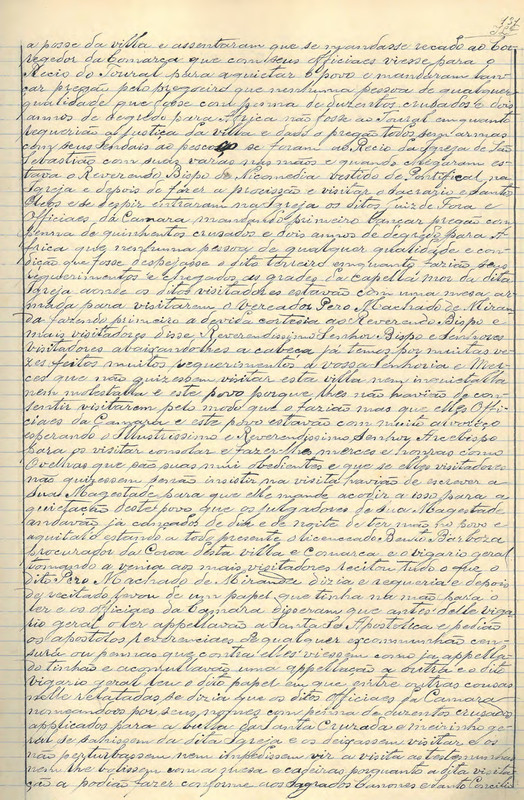 a posse da villa e assentaram que se mandasse recado ao Cor-
regedor da Comarca que com seus Officiaes viesse para o
Recio do Toural para aquietar o povo e mandaram lan-
çar pregão pelo pregoeiro que nenhuma pessoa de qualquer
qualidade que fosse com penna de duzentos crusados e dois
annos de degredo para Africa não fosse ao Toural emquanto
requerião a justiça da villa e dado o pregão todos sem armas
com seus sendais ao pescoço se foram ao Recio da Igreja de São
Sebastião com suas varas nas mãos e quando chegaram es-
tava o Reverendo Bispo de Nicomedia vestido de Pontifical na
Igreja e depois de fazer a procissão e visitar o Sacrario e Santos
Oleos e se despir entraram na Igreja os ditos juiz de Fora e
Officiaes da Camara mandando primeiro lançar pregão com
penna de quinhentos crusados e dois annos de degredo para A-
frica que nenhuma pessoa de qualquer qualidade e con-
dição que fosse despejasse o dito terreiro emquanto fazião seus
requerimentos e chegados as grades da capella mor da dita
Igreja aonde os ditos visitadores estavão com uma mesa ar-
mada para visitarem o vereador Pero Machado de Miran-
da fazendo primeiro a devida cortesia ao Reverendo Bispo e
mais visitadores disse Reverendissimo Senhor Bispo e Senhores
visitadores abaixando-lhes a cabeça já temos por muitas ve-
zes feitos muitos requerimentos a vossa Senhoria e Mer-
ces que não quizessem visitar esta villa nem inquietal-a
nem molestal-a e este povo porque lhes não havião de con-
sentir visitarem pelo modo que o fazião mas que elles Offi-
ciaes da Camara e este povo estavão com muito alvoroço
esperando o Illustrissimo e Reverendissimo Senhor Arcebispo
para os visitar consolar e fazer-lhe merces e honras como
Ovelhas que são suas mui obedientes e que se elles visitadores
não quizessem senão insistir na visita havião de escrever a
Sua Magestade para que elle mande acodir a isso para a
quietação deste povo que os julgadores de sua Magestade
andavão já cançados de dia e de noite de ter mão no povo e
aquital-o estando a tode presente o licenceado Bento Barboza
procurador da Coroa desta villa e Comarca e o vigario geral
tomando a venia aos mais visitadores recitou tudo o que o
dito Pero Machado de Miranda dizia e requeria e depois
de recitado favou de um papel que tinha na mão para o
ler e os officiaes da Camara disseram que antes delle viga-
rio geral o ler appellavão a Santa Sé Apostolica e pedião
os apostolos reverenciaes de qualquer excommunhão cen-
sura ou pennas que contra elles viessem como já appella-
do tinhão e acomullavão uma appellação a outra e o dito
vigario geral leu o dito papel em que entre outras cousas
nelle relatadas se dizia que os ditos officiaes da Camara
nomeando-os por seus nomes com penna de duzentos crusados
applicados para a bulla da Santa Crusada e meirinho ge-
ral se sahissem da dita Igreja e os deixassem visitar e os
não perturbassem nem impedissem vir a visita as testemunhas
nem lhe bolissem com a mesa e cadeiras porquanto a dita visita-
ção a podião fazer conforme aos Sagrados Canones e Santo Concilio